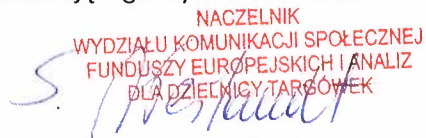 NACZELNIK
WYDZIAŁU KOMUNIKACJI SPOŁECZNEJ
FUNDUSZY EUROPEJSKICH I ANALIZ
DLA DZIELNICY TARGÓWEK
S.